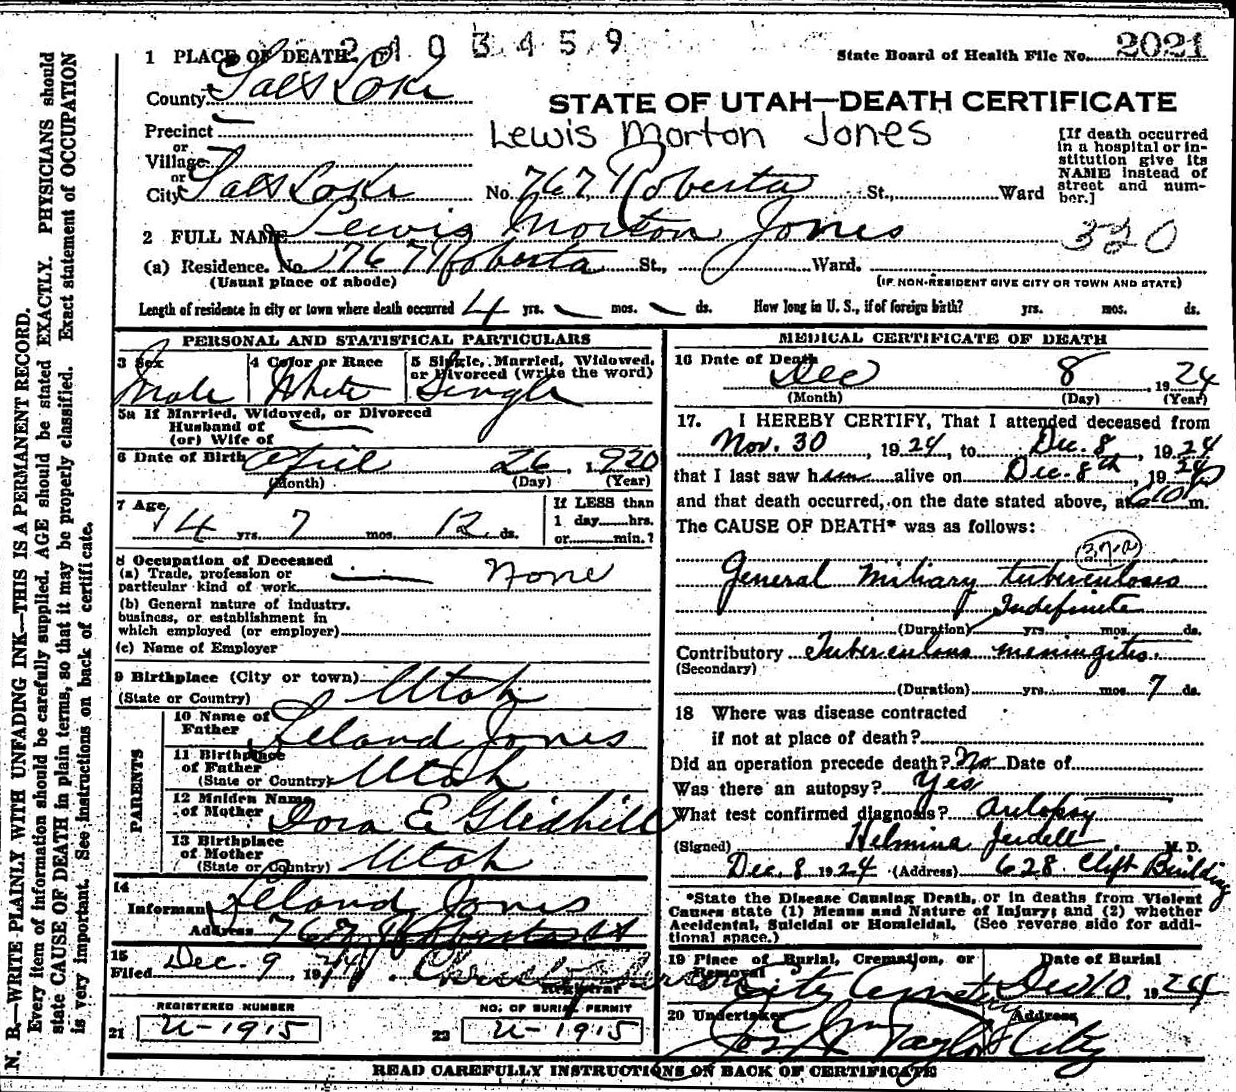 N. B.—WRITE PLAINLY WITH UNFADING INK—THIS IS A PERMANENT RECORD.
Every item of information should be carefully supplied. AGE should be stated EXACTLY. PHYSICIANS should
state CAUSE OF DEATH in plain terms, so that it may be properly classified. Exact statement of OCCUPATION
is very important. See instructions on back of certificate.
2 1 0 3 4 5 9
1 PLACE OF DEATH
State Board of Health File No. 2021
County Salt Lake
STATE OF UTAH—DEATH CERTIFICATE
Precinct
Lewis Morton Jones
or
Village
or
City Salt Lake No. 767 Roberta St., Ward
[If death occurred
in a hospital or in-
stitution give its
NAME instead of
street and num-
ber.]
2 FULL NAME Lewis Morton Jones
320
(a) Residence. No. 767 Roberta St., Ward.
(Usual place of abode) (IF NON-RESIDENT GIVE CITY OR TOWN AND STATE)
Length of residence in city or town where death occurred 4 yrs. mos. ds. How long in U. S., if of foreign birth? yrs. mos. ds.
PERSONAL AND STATISTICAL PARTICULARS
3 Sex
Male
4 Color or Race
White
5 Single, Married, Widowed,
or Divorced (write the word)
Single
5a If Married, Widowed, or Divorced
Husband of
(or) Wife of
6 Date of Birth April 26, 1920
(Month) (Day) (Year)
7 Age
4 yrs. 7 mos. 12 ds.
If LESS than
1 day hrs.
or min.?
8 Occupation of Deceased
(a) Trade, profession or
particular kind of work None
(b) General nature of industry,
business, or establishment in
which employed (or employer)
(c) Name of Employer
9 Birthplace (City or town)
(State or Country) Utah
PARENTS
10 Name of
Father Leland Jones
11 Birthplace
of Father
(State or Country) Utah
12 Maiden Name
of Mother Dora E Gledhill
13 Birthplace
of Mother
(State or Country) Utah
14
Informant Leland Jones
Address 767 Roberta St
15
Filed Dec. 9, 1924
Registrar
REGISTERED NUMBER
21 U-1915
NO. OF BURIAL PERMIT
22 U-1915
MEDICAL CERTIFICATE OF DEATH
16 Date of Death
Dec 8, 1924
(Month) (Day) (Year)
17. I HEREBY CERTIFY, That I attended deceased from
Nov. 30, 1924, to Dec. 8, 1924
that I last saw him alive on Dec. 8th, 1924
and that death occurred, on the date stated above, at 610 p m.
The CAUSE OF DEATH* was as follows:
General miliary tuberculosis
Indefinite
(Duration) yrs. mos. ds.
Contributory Tuberculous meningitis.
(Secondary)
(Duration) yrs. mos. 7 ds.
18 Where was disease contracted
if not at place of death?
Did an operation precede death? No Date of
Was there an autopsy? Yes
What test confirmed diagnosis? Autopsy
(Signed) Helmina Jeidell M. D.
Dec. 8 1924 (Address) 628 Clift Building
*State the Disease Causing Death, or in deaths from Violent
Causes state (1) Means and Nature of Injury; and (2) whether
Accidental, Suicidal or Homicidal. (See reverse side for addi-
tional space.)
19 Place of Burial, Cremation, or
Removal
City Cemetery
Date of Burial
Dec 10, 1924
20 Undertaker
Jos Wm Taylor
Address
City
READ CAREFULLY INSTRUCTIONS ON BACK OF CERTIFICATE